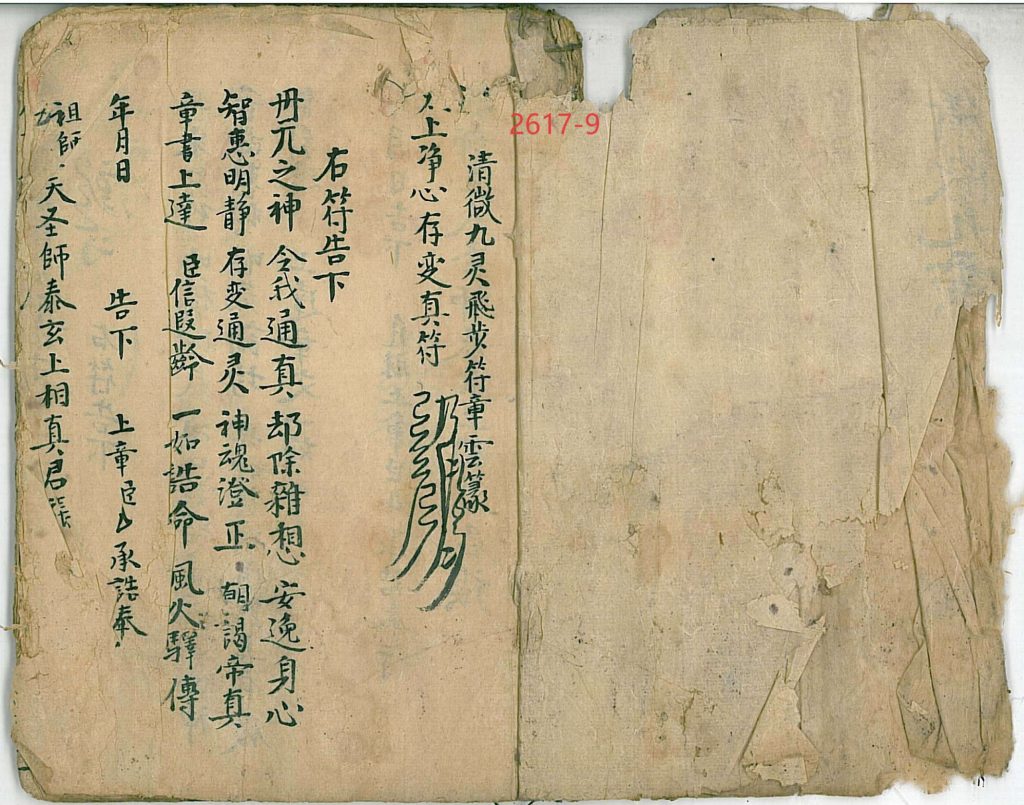 2617-9
清微九灵飛步符章雲篆
太上净心存变真符
右符告下
丹元之神 令我通真 却除雜想 安逸身心
智惠明静 存变通灵 神魂澄正 朝謁帝真
章書上達 臣信遐齡 一如誥命 風火驛傳
年月日 告下 上章臣厶承誥奉
祖師天圣師泰玄上相真君張